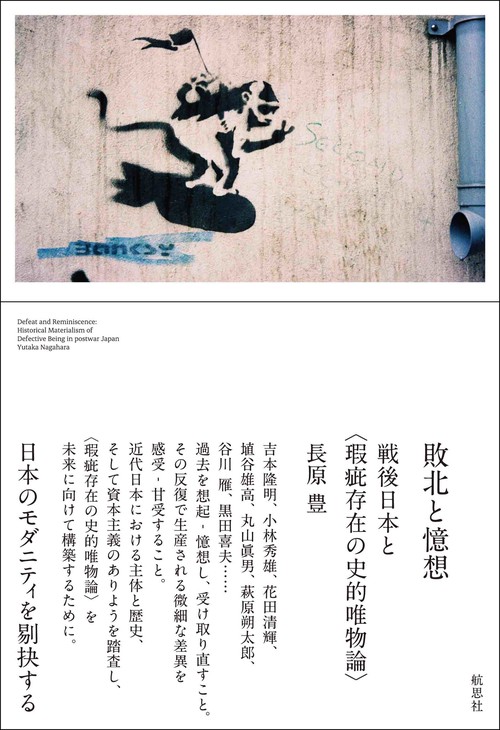 SECOND
BANKSY
Defeat and Reminiscence:
Historical Materialism of
Defective Being in postwar Japan
Yutaka Nagahara
敗北と憶想
戦後日本と
〈瑕疵存在の史的唯物論〉
長原 豊
吉本隆明、小林秀雄、花田清輝、
埴谷雄高、丸山眞男、萩原朔太郎、
谷川 雁、黒田喜夫……
過去を想起‐憶想し、受け取り直すこと。
その反復で生産される微細な差異を
感受‐甘受すること。
近代日本における主体と歴史、
そして資本主義のありようを踏査し、
〈瑕疵存在の史的唯物論〉を
未来に向けて構築するために。
日本のモダニティを剔抉する
航思社